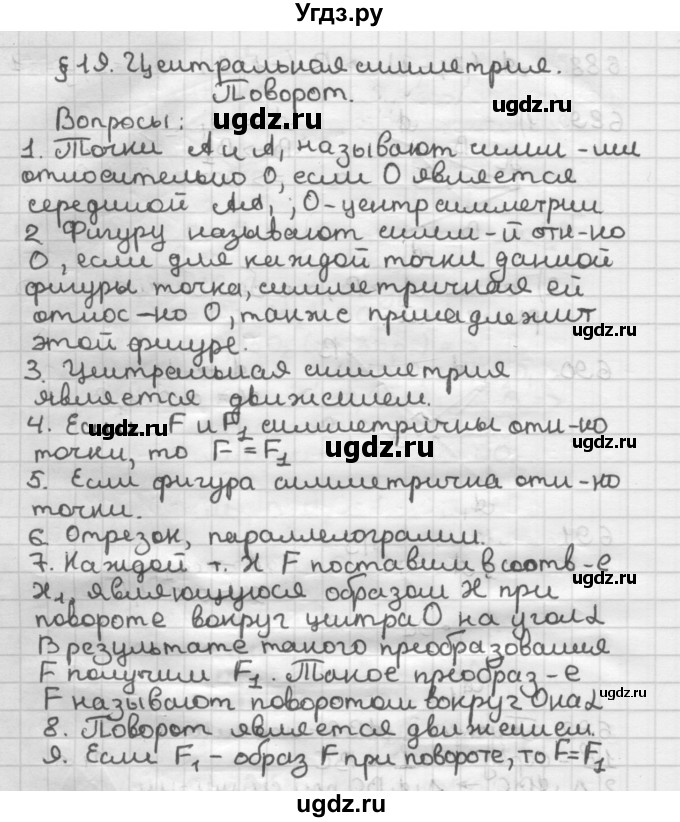 Угдз.ру
§ 19. Центральная симметрия.
Поворот.
Вопросы:
1. Точки А и А₁ называют симм-ми
относительно О, если О является
серединой АА₁; О-центр симметрии
2 Фигуру называют симм-й отн-но
О, если для каждой точки данной
фигуры точка, симметричная ей
относ-но О, также принадлежит
этой фигуре.
3. Центральная симметрия
является движением.
4. Если F и F₁ симметричны отн-но
точки, то F = F₁
5. Если фигура симметрична отн-но
точки.
6. Отрезок, параллелограмм.
7. Каждой т. X F поставим в соотв-е
X₁, являющуюся образом X при
повороте вокруг центра О на угол α
В результате такого преобразования
F получим F₁. Такое преобраз-е
F называют поворотом вокруг О на α
8. Поворот является движением.
9. Если F₁ - образ F при повороте, то F=F₁
ugdz.ru
ugdz.ru
ugdz.ru
ugdz.ru
ugdz.ru
ugdz.ru
ugdz.ru
ugdz.ru
ugdz.ru
ugdz.ru
ugdz.ru
ugdz.ru
ugdz.ru